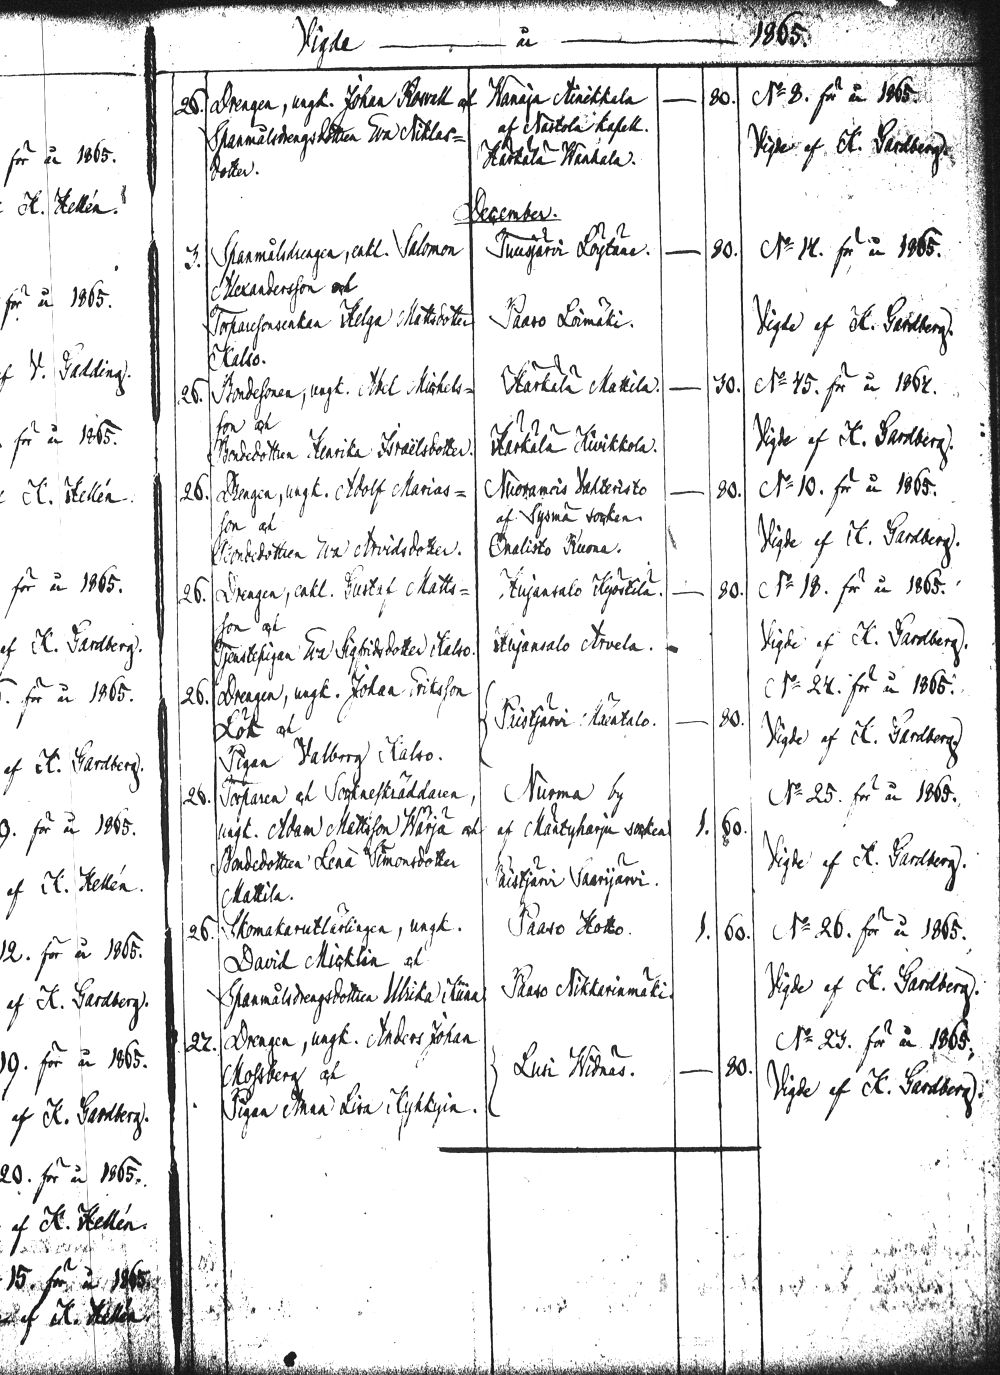 Vigde — år — 1865.
för år 1865.
K. Hellén.
för år 1865.
af V. Gadding.
för år 1865.
K. Hellén.
för år 1865.
af K. Gardberg.
för år 1865.
af K. Gardberg.
9. för år 1865.
af K. Hellén.
12. för år 1865.
af K. Gardberg.
19. för år 1865.
af K. Gardberg.
20. för år 1865.
af K. Hellén.
15. för år 1865.
af K. Hellén.
26. Drengen, ungk. Johan Rosvall och Wanaja Ainikkala — 80. No 8. för år 1865.
Spanmålsdrengsdottren Eva Niklas= af Nastola kapell. Vigde af K. Gardberg.
dotter. Härkälä Wanhala.
December.
3. Spanmålsdrengen, enkl. Salomon Tuusjärvi Löytäne. — 80. No 14. för år 1865.
Alexandersson och
Torparesonsenkan Helga Mattsdotter Paaso Loimäki. Vigde af K. Gardberg.
Kalso.
26. Bondesonen, ungk. Abel Michels= Härkälä Mattila. — 30. No 45. för år 1864.
son och
Bondedottren Henrika Israëlsdotter. Härkälä Kivikkola. Vigde af K. Gardberg.
26. Drengen, ungk. Adolf Marias= Nuoramois Vahteristo — 80. No 10. för år 1865.
son och af Sysmä socken.
Bondedottren Eva Arvidsdotter. Onalisto Ruona. Vigde af K. Gardberg.
26. Drengen, enkl. Gustaf Matts= Hujansalo Kyöstilä. — 80. No 18. för år 1865.
son och
Tjenstepigan Eva Sigfridsdotter Kalso. Hujansalo Arvela. Vigde af K. Gardberg.
26. Drengen, ungk. Johan Eriksson No 24. för år 1865.
Lök och Ristjärvi Mäntalo. — 80.
Pigan Valborg Kalso. Vigde af K. Gardberg.
26. Torparen och Sockneskräddaren, Nurma by No 25. för år 1865.
ungk. Adam Mattsson Wärjä och af Mäntyharju socken 1. 60.
Bondedottren Lena Simonsdotter Ristjärvi Saarijärvi. Vigde af K. Gardberg.
Mattila.
26. Skomakarutlärlingen, ungk. Paaso Hokko. 1. 60. No 26. för år 1865.
David Micklin och
Spanmålsdrengsdottren Ulrika Paaso Nikkarinmäki. Vigde af K. Gardberg.
27. Drengen, ungk. Anders Johan No 23. för år 1865.
Mossberg och Lusi Widnäs. — 80.
Pigan Anna Lisa Hyhkyin. Vigde af K. Gardberg.